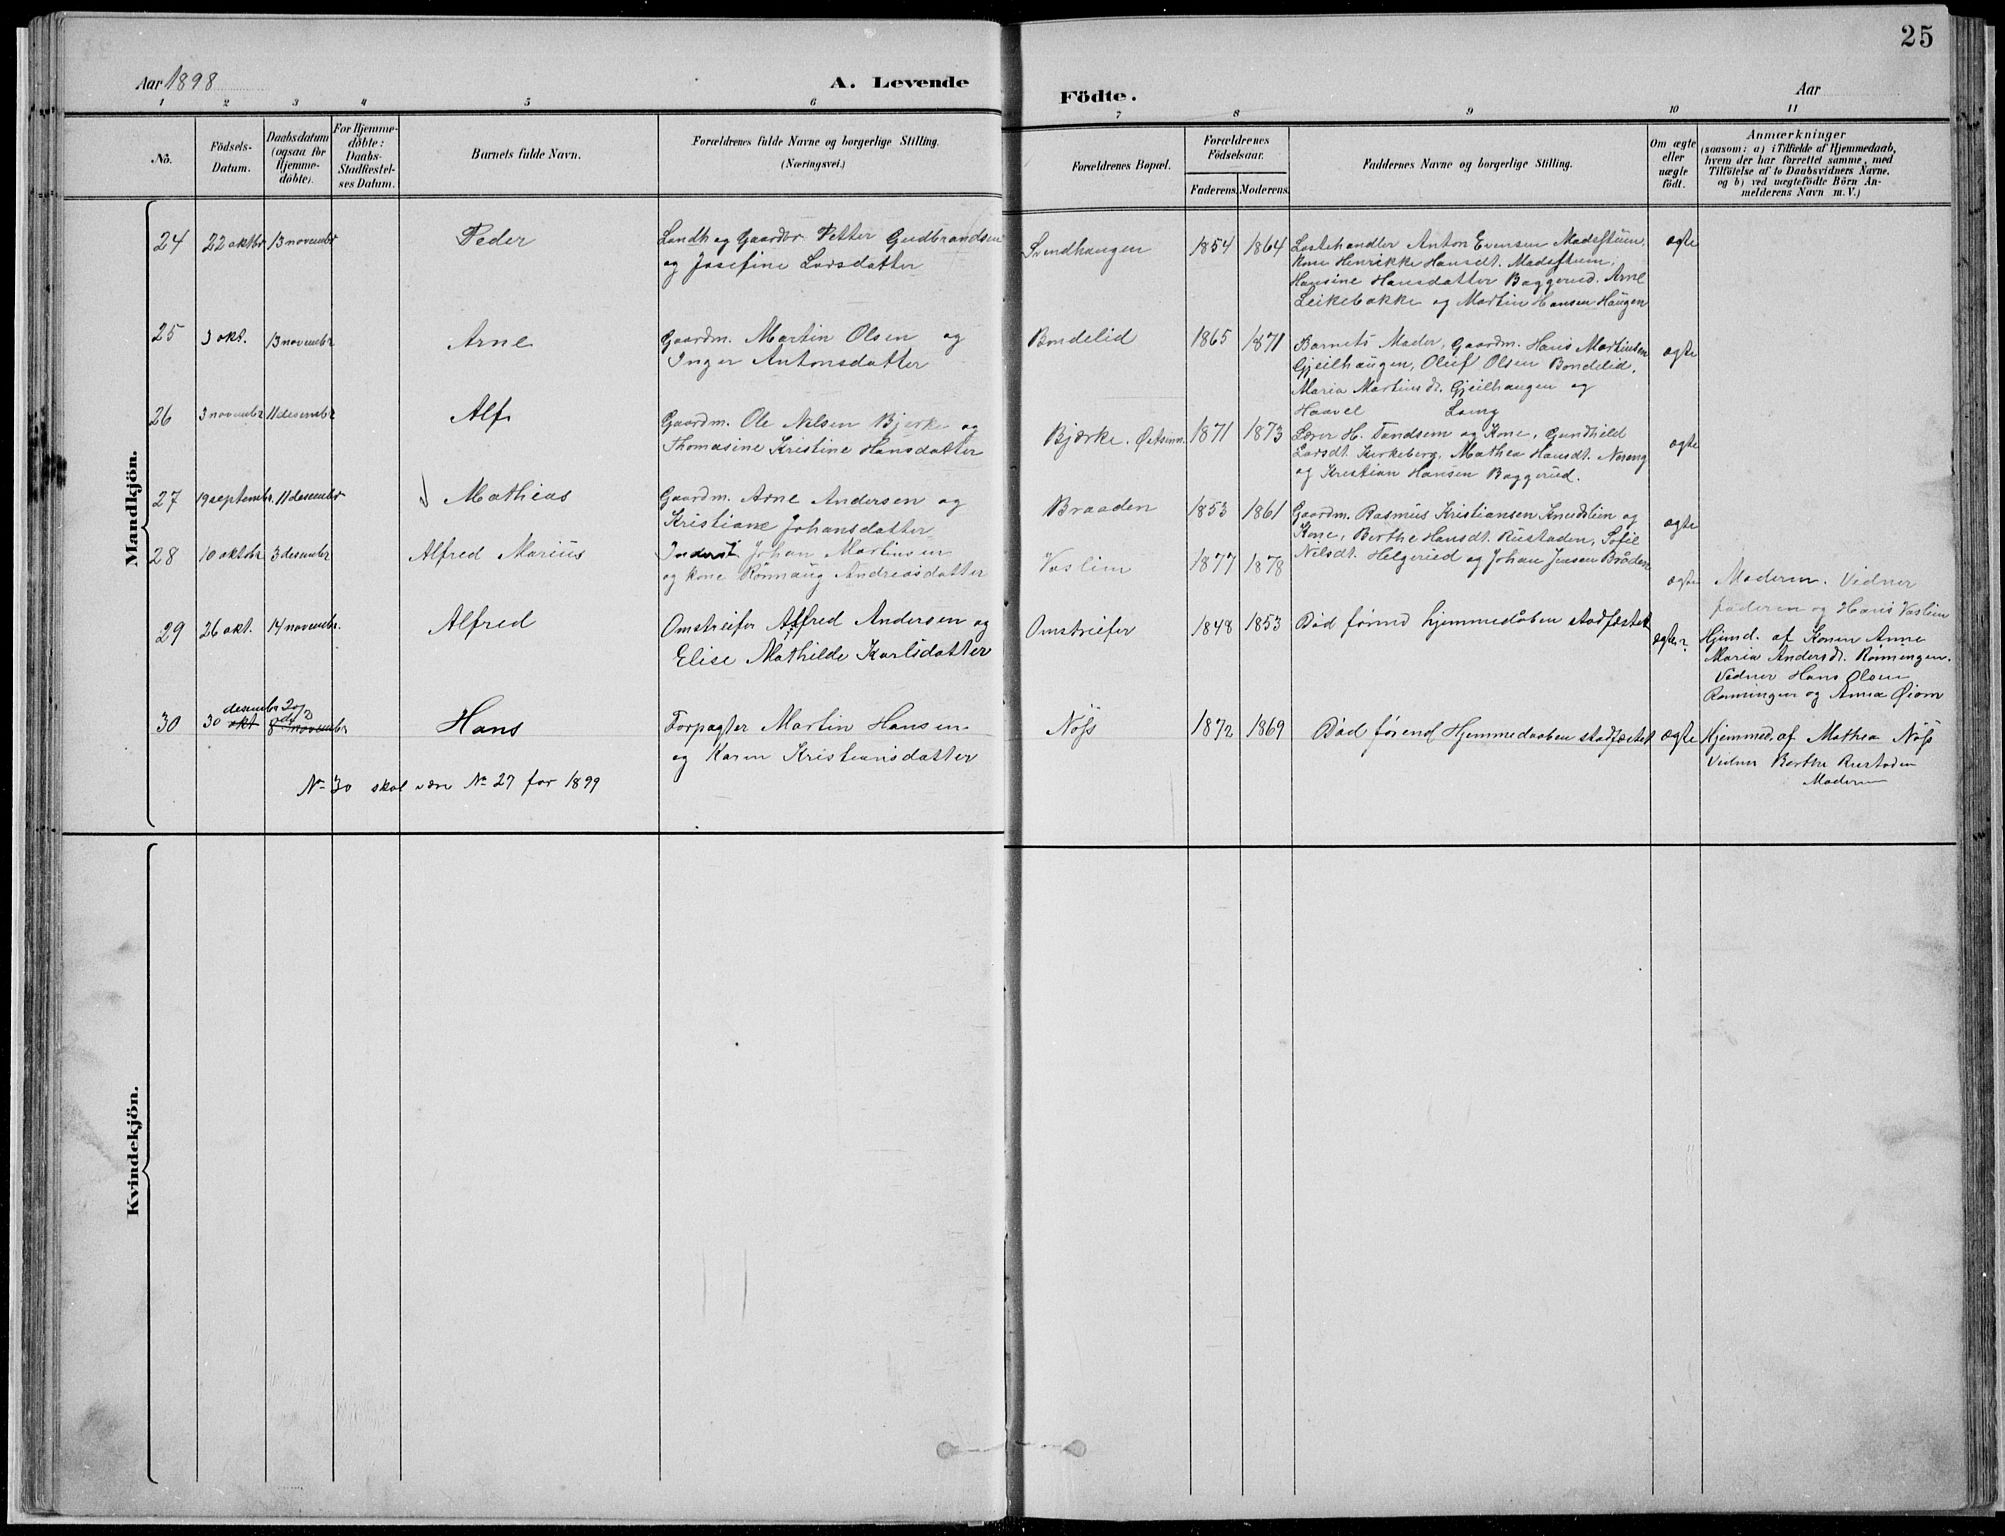 25
Aar 1898
A. Levende
Födte.
Aar
1 2 3 4 5 6 7 8 9 10 11
No.
Födsels-
Datum.
Daabsdatum
(ogsaa for
Hjemme-
döbte).
For Hjemme-
döbte:
Daabs-
Stadfæstel-
ses Datum.
Barnets fulde Navn.
Forældrenes fulde Navne og borgerlige Stilling.
(Næringsvei.)
Forældrenes Bopæl.
Forældrenes
Födselsaar.
Faderens. Moderens.
Faddernes Navne og borgerlige Stilling.
Om ægte
eller
uægte
födt.
Anmærkninger
(saasom: a) i Tilfælde af Hjemmedaab,
hvem der har forrettet samme, med
Tilföielse af to Daabsvidners Navne,
og b) ved uægtefödte Börn An-
melderens Navn m. V.)
Mandkjön.
24 22 oktbr 13 novembr Peder
Landh og Gaardbr Petter Gudbrandsen
og Josefine Larsdatter
1854 1864
Lastehandler Anton Evensen Madsstuen,
Kone Henrikke Hansdt. Madsstuen,
Hansine Hansdatter Baggerud. Arne
Leikebakke og Martin Hansen Haugen
ægte
25 3 okt. 13 novembr Arne
Gaardm. Martin Olsen og
Inger Antonsdatter
Bondelid 1865 1871
Barnets Moder, Gaardm. Hans Martinsen
Gjeilhaugen, Oluf Olsen Bondelid,
Maria Martinsdt. Gjeilhaugen og
Haavel
ægte
26 3 novembr 11 desembr Alf
Gaardm. Ole Nilsen Bjerke og
Thomasine Kristine Hansdatter
Bjærke. 1871 1873
Lærer H. Tandsem og Kone, Gundhild
Larsdt. Kirkeberg, Mathea Hansdt. Noreng
og Kristian Hansen Baggerud.
ægte
27 19 septembr. 11 desembr Mathias
Gaardm. Arne Andersen og
Kristiane Johansdatter
Braaden 1853 1861
Gaardm. Rasmus Kristiansen Knudslien og
Kone, Berthe Hansdt. Rustaden, Sofie
Nilsdt. Helgerud og Johan Jensen Bråden
ægte
28 10 oktbr 3 desembr Alfred Marius
Inderst Johan Martinsen
og kone Rönnaug Andreasdatter
Vaslien 1877 1878
ægte
Moderen. Vidner
faderen og Hans Vaslien
29 26 okt. 14 novembr. Alfred
Omstreifer Alfred Andersen og
Elise Mathilde Karlsdatter
Omstreifer 1848 1853
Död förend hjemmedåben stadfæstet
ægte?
Hjemd. af Konen Anne
Maria Andersdt. Rönningen.
Vidner Hans Olsen
Rønningen og Anna Øiom
30 30 desembr okt 8de novembr Hans
Forpagter Martin Hansen
og Karen Kristiansdatter
Nöss 1872 1869
Död förend Hjemmedaaben stadfæstet
ægte
Hjemmed. af Mathea Nöss
Vidner Berthe Rustaden
Moderen
No 30 skal være No 27 for 1899
Kvindekjön.